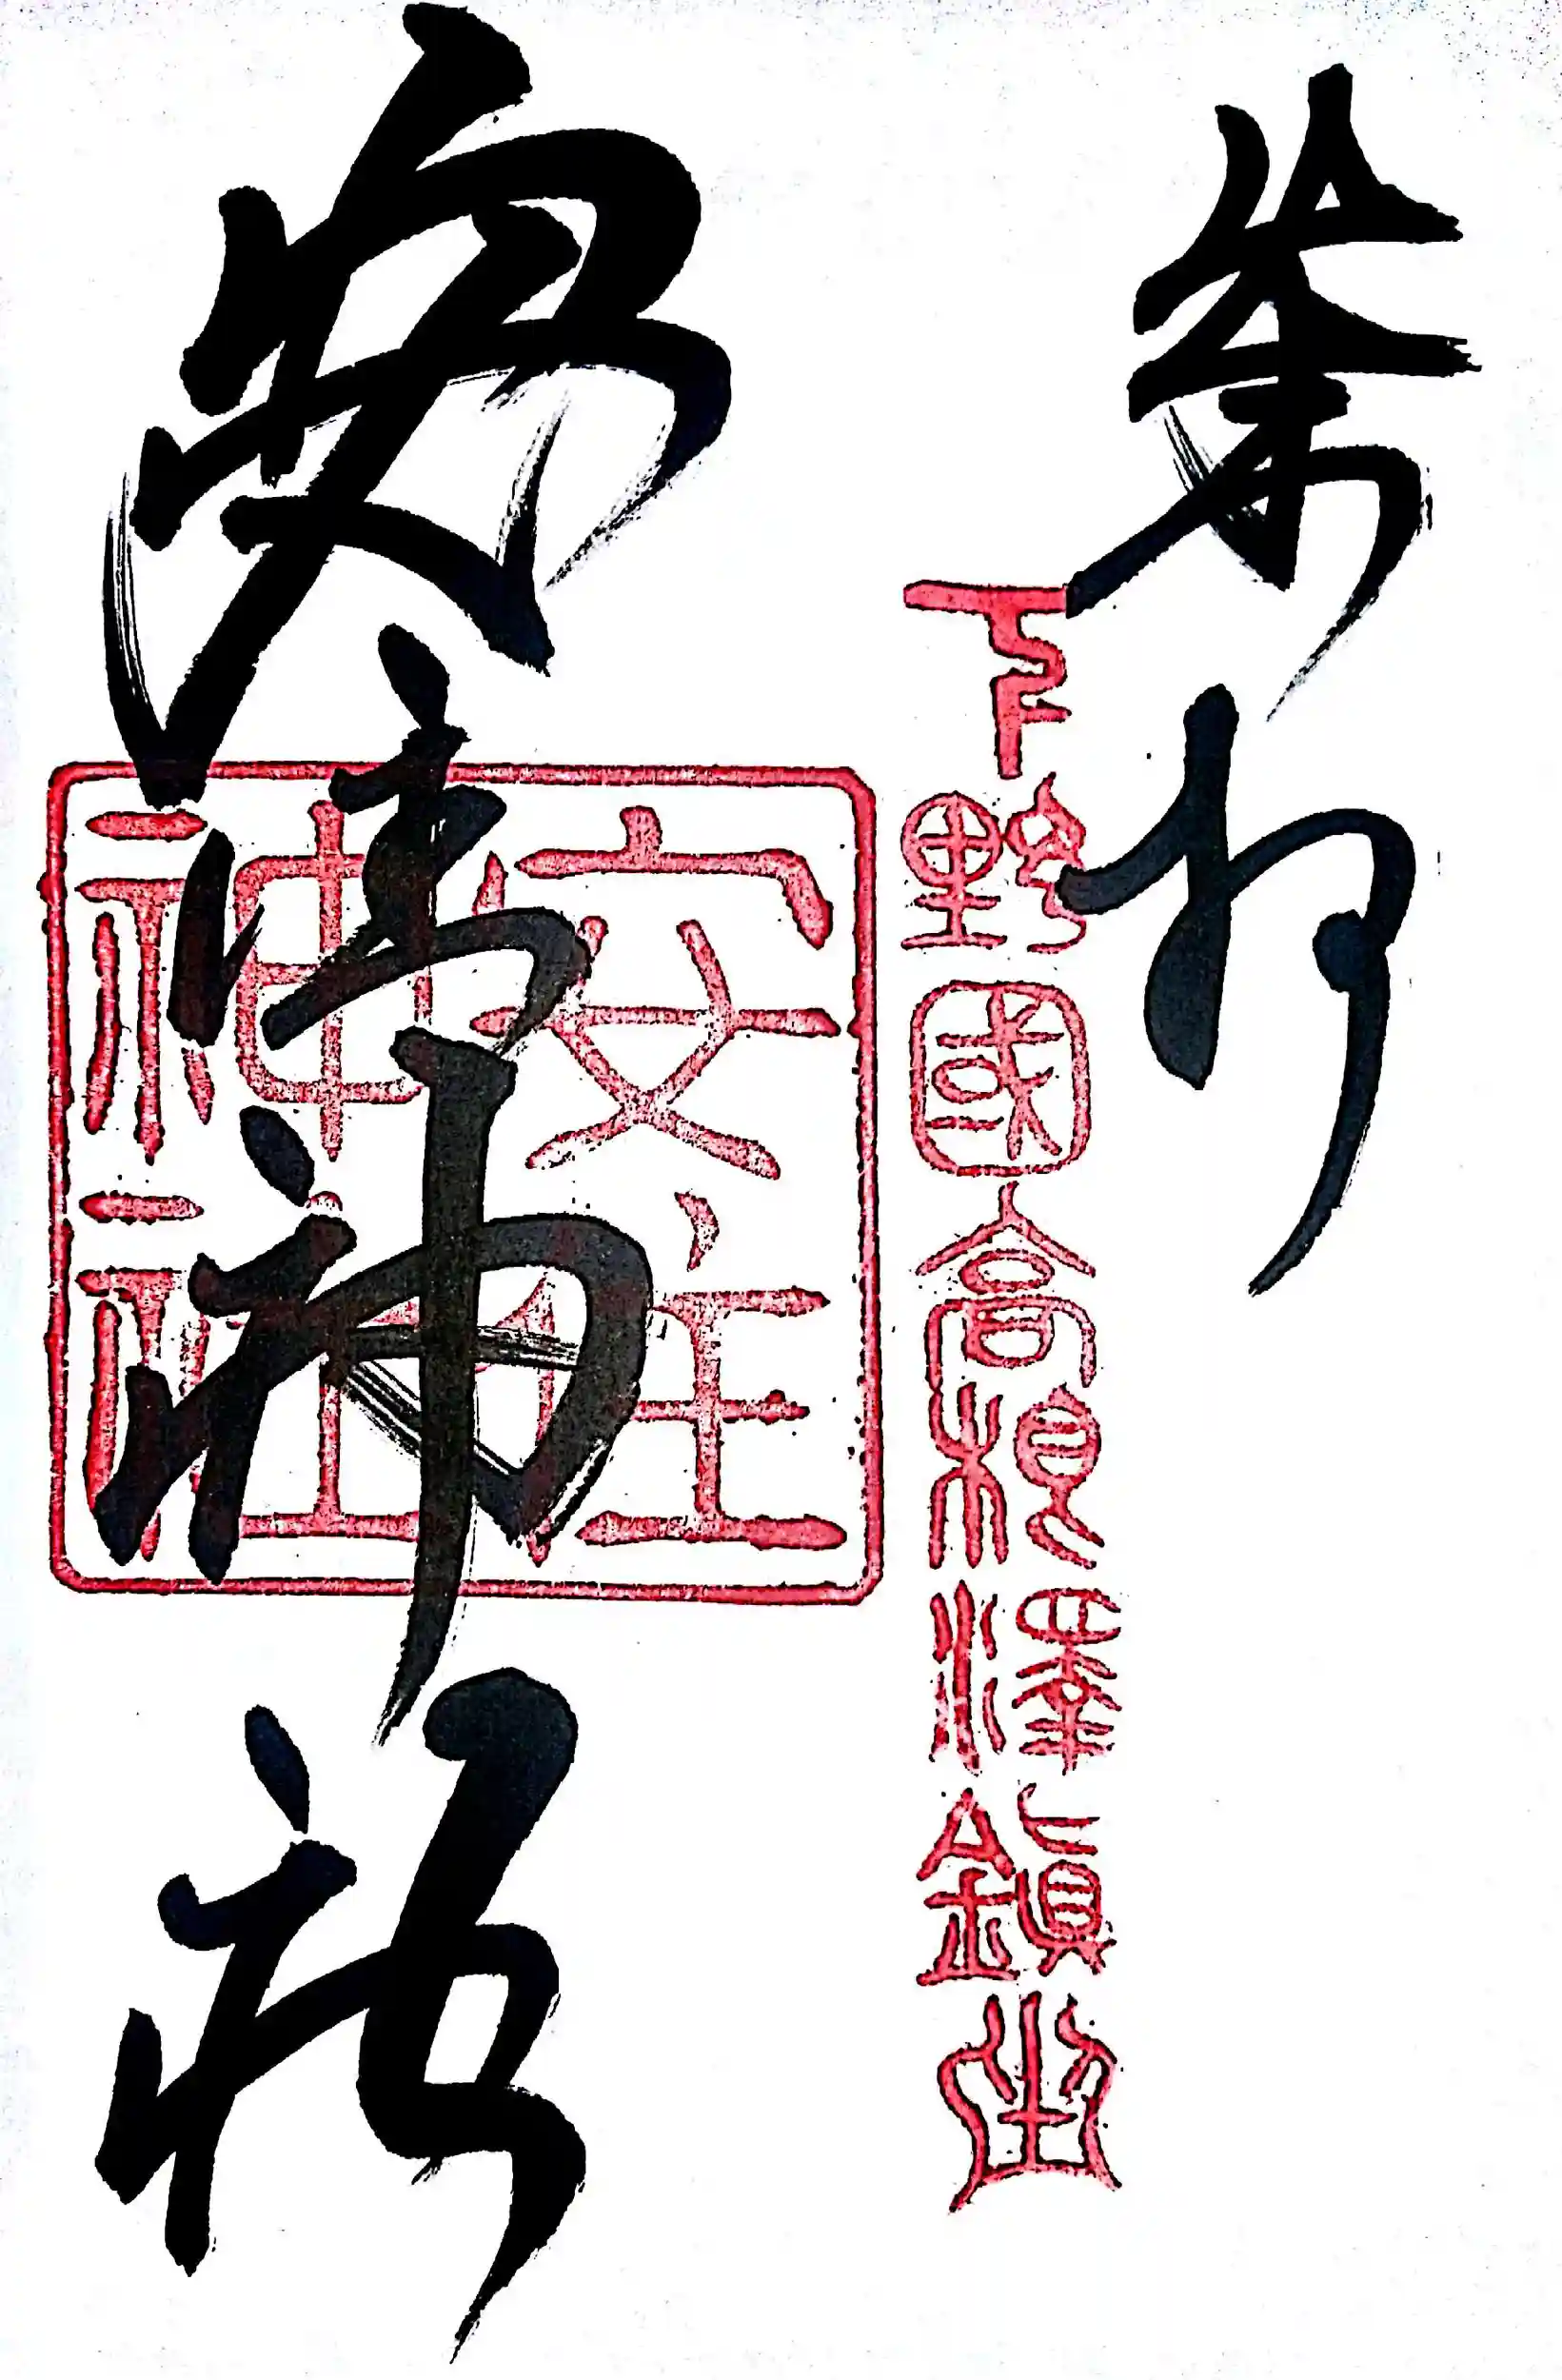 奉拝
下野國高根澤鎮座
安住神社
安住神社